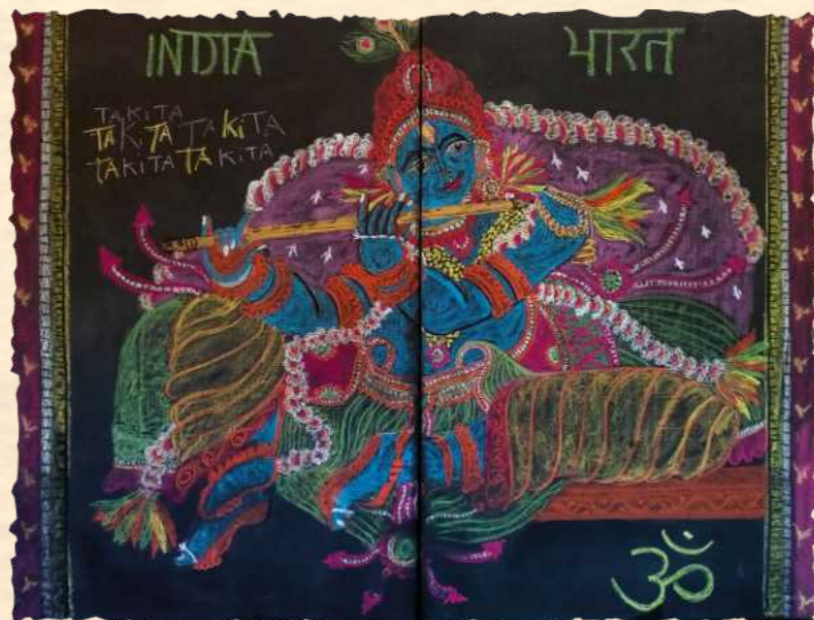 INDIA
भारत
TAKITA
TAKITATAKITA
TAKITA TAKITA
ॐ